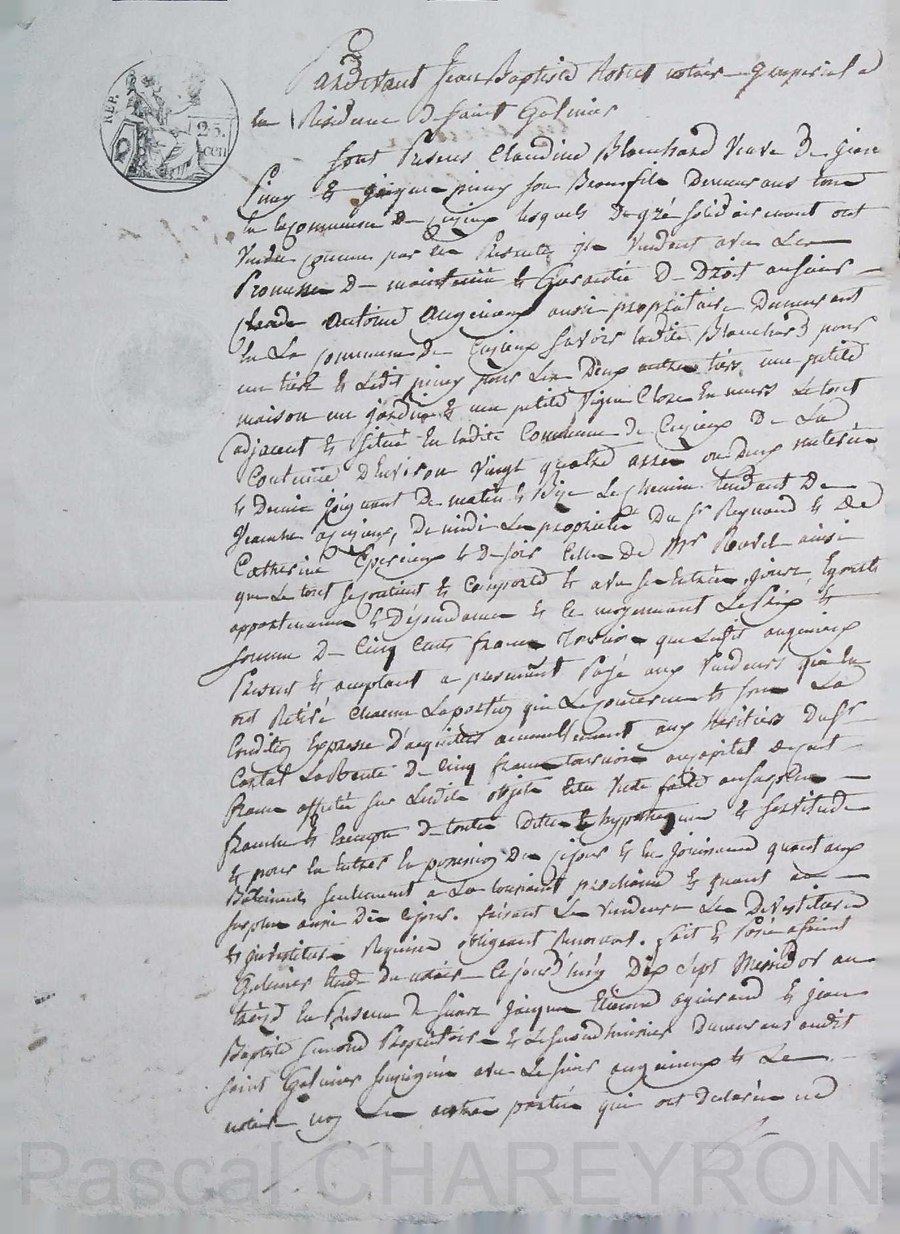 REP.
25.
cen
Pardevant Jean Baptiste notaire imperial a
la Residence de Saint Galmier
sont Presens Claudine Blanchard Veuve de jean
Piney et jacque piney son Beaufils Demeurans tous
en la commune de Cuzieux lesquels de gré solidairement ont
Vendu comme par les Presentes ils Vendent avec
Promesse de maintenir et Garantie de Droit au sieur
Claude Antoine augieneux aussi proprietaire Demeurant
en La commune de Cuzieux savoir ladite Blanchard pour
un tiers et Ledit piney pour Les Deux autres tiers, une petite
maison un jardin et une petite Vigne Close en murs Le tout
adjacent et situé En ladite Commune de Cuzieux De La
Contenue d'Environ Vingt quatre ares ou deux
et Demie joignant De matin et Bize Le chemin tendant De
a cuzieux, De midi Les proprietés Du Sr Reynaud et de
Catherine et De soir Celle De Mr Ravel ainsi
que Le tout se contient et Comporte et avec ses Entrées, jours, Egouts
appartenances et Dépendances et Ce moyennant Le prix et
somme De Cinq Cents francs Tournois que Ledit augieneux
Present et acceptant a presentement Payé aux Vendeurs qui En
ont Retiré Chacun La portion qui Le concerne et sous La
Condition Expresse D'acquitter annuellement aux Heritiers du Sr
La Rente De Cinq francs tournois au capital de cent
francs affectée sur Lesdits objets Cete Vente faite au surplus
franche et Exempte De toutes Dettes et hypotheques et servitude
et pour En Entrer En possession De Ce jour et En jouissance quant aux
Bâtimens seulement a La toussaint prochaine et quant au
surplus aussi Dès Ce jour. faisant Les Vendeurs Les Devestitures
et investitures Requises obligeant Renonçant. fait et Passé a saint
Galmier Etude du notaire Ce jourd'huy Dix sept Messidor an
treize En Presence de sieurs Jacque Etienne et jean
Baptiste Simond Proprietaire et Demeurans audit
saint Galmier soussignés avec Le sieur augieneux et Le
notaire non Les autres parties qui ont declarés ne
Pascal CHAREYRON